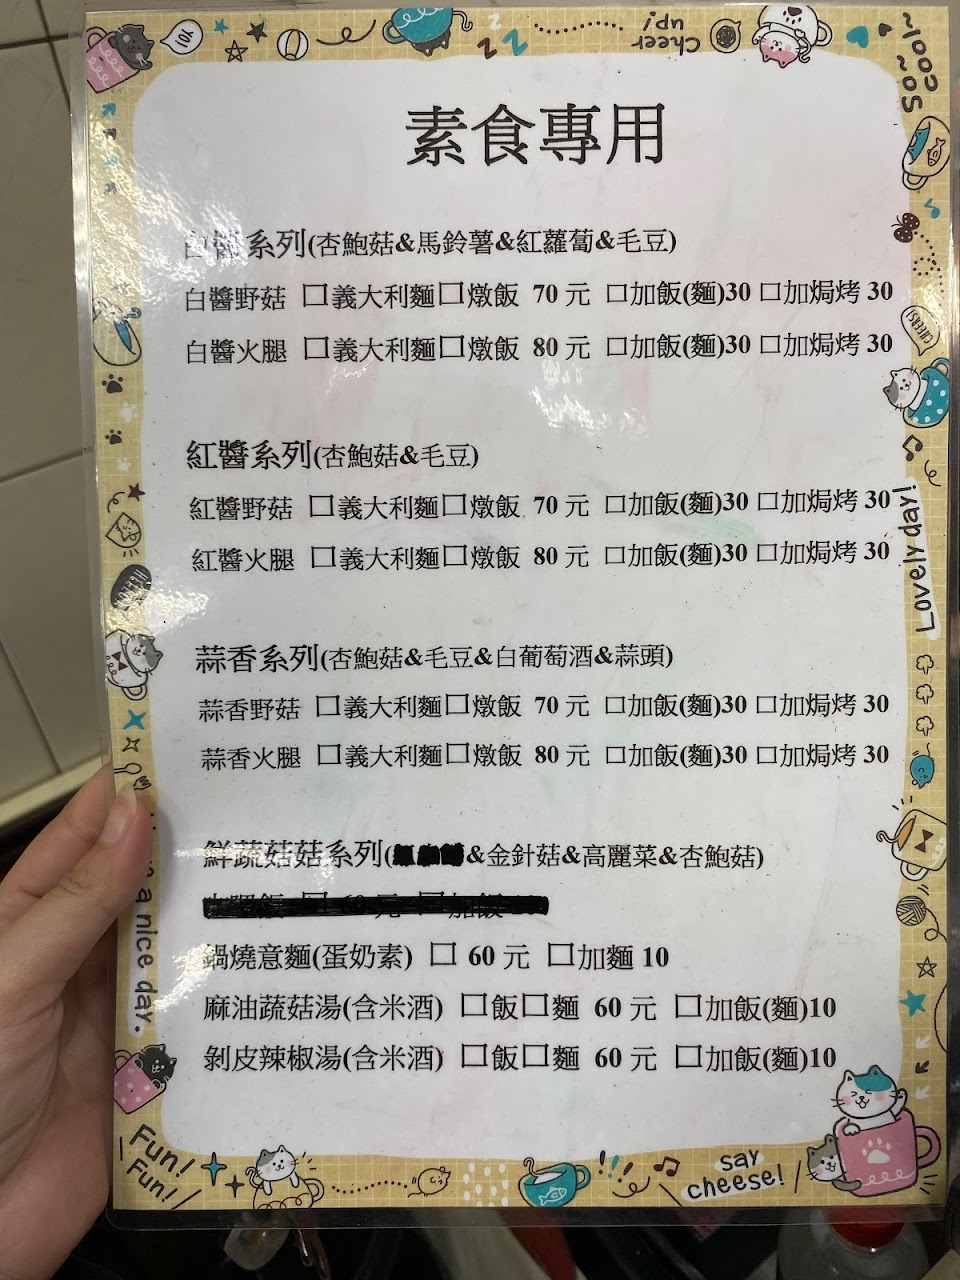 YO!
Cheer up!
so~ cool~
素食專用
白醬系列(杏鮑菇&馬鈴薯&紅蘿蔔&毛豆)
白醬野菇 □義大利麵□燉飯 70 元 □加飯(麵)30 □加焗烤 30
白醬火腿 □義大利麵□燉飯 80 元 □加飯(麵)30 □加焗烤 30
CHEERS!
紅醬系列(杏鮑菇&毛豆)
紅醬野菇 □義大利麵□燉飯 70 元 □加飯(麵)30 □加焗烤 30
紅醬火腿 □義大利麵□燉飯 80 元 □加飯(麵)30 □加焗烤 30
Lovely day!
蒜香系列(杏鮑菇&毛豆&白葡萄酒&蒜頭)
蒜香野菇 □義大利麵□燉飯 70 元 □加飯(麵)30 □加焗烤 30
蒜香火腿 □義大利麵□燉飯 80 元 □加飯(麵)30 □加焗烤 30
鮮蔬菇菇系列(&金針菇&高麗菜&杏鮑菇)
鍋燒意麵(蛋奶素) □ 60 元 □加麵 10
麻油蔬菇湯(含米酒) □飯□麵 60 元 □加飯(麵)10
剝皮辣椒湯(含米酒) □飯□麵 60 元 □加飯(麵)10
a nice day.
Fun!
Fun!
say
cheese!